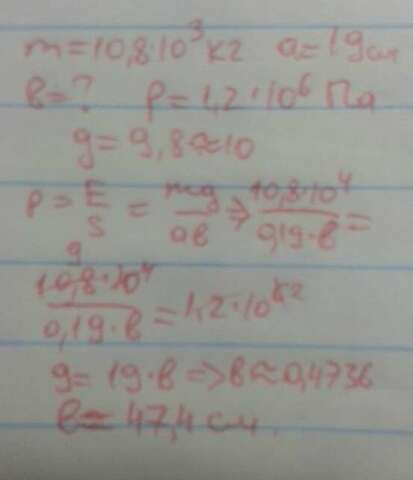 m=10,8·10³ кг a=19см
в=? p=1,2·10⁶ Па
g=9,8≈10
p=F/S=mg/aв⇒10,8·10⁴/0,19·в=
9
10,8·10⁴/0,19·в=1,2·10⁶
9=19·в=>в≈0,4736
в≈47,4см